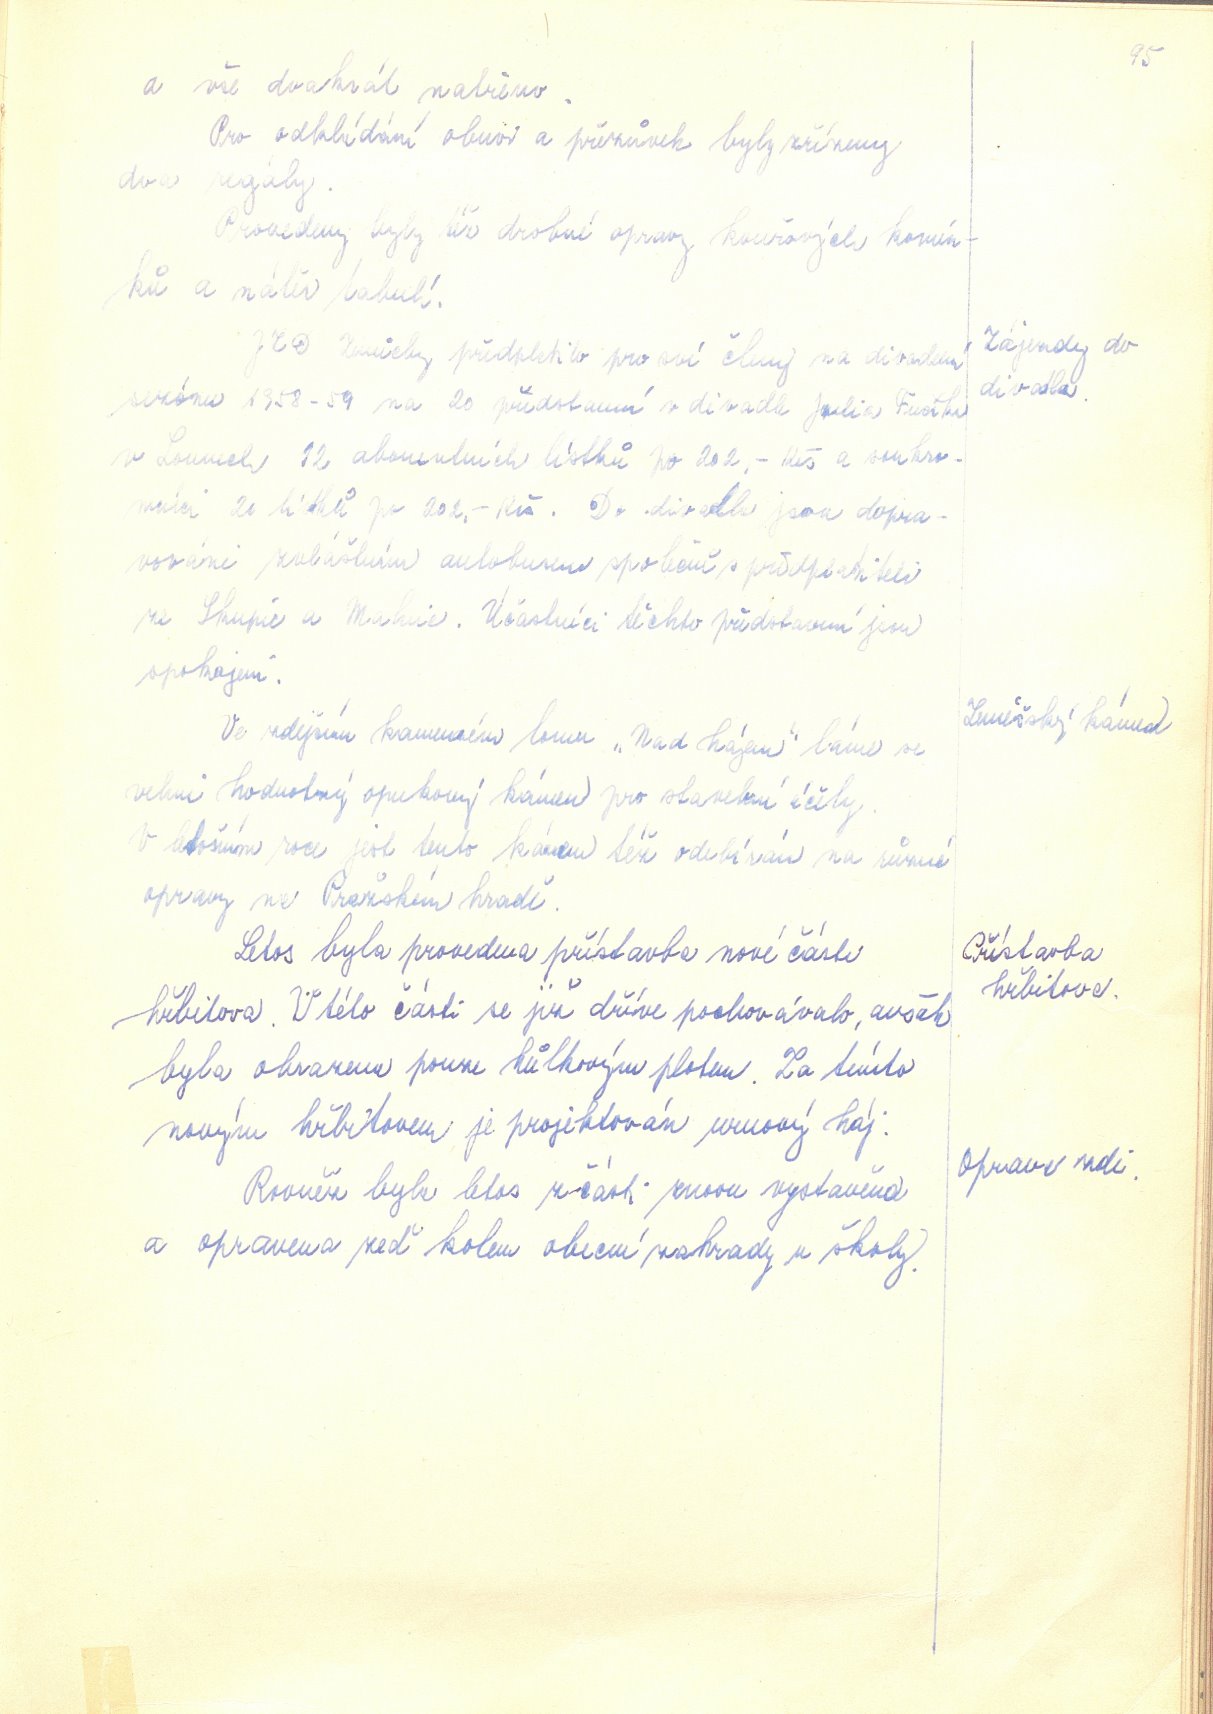 95
a vše dvakrát natřeno.
Pro odkládání obuvi a přezůvek byly zřízeny
dva regály.
Provedeny byly též drobné opravy kouřových komín-
ků a nátěr tabulí.
JZD předplatilo pro své členy na divadelní
Zájezdy do
divadla.
sezónu 1958-59 na 20 představení v divadle Julia Fučíka
v Lounech 12 abonentních lístků po 202,- Kčs a soukro-
níci 20 lístků po 202,- Kčs. Do divadla jsou dopra-
vováni zvláštním autobusem společně s předplatiteli
ze Skupic a Malnic. Účastníci těchto představení jsou
spokojeni.
Ve zdejším kamenném lomu „Nad hájem" láme se
kámen
velmi hodnotný opukový kámen pro stavební účely.
V letošním roce jest tento kámen též odebírán na různé
opravy na Pražském hradě.
Letos byla provedena přístavba nové části
Přístavba
hřbitova.
hřbitova. V této části se již dříve pochovávalo, avšak
byla ohrazena pouze kůlkovým plotem. Za tímto
novým hřbitovem je projektován urnový háj.
Oprava zdi.
Rovněž byla letos z části znovu vystavěna
a opravena zeď kolem obecní zahrady u školy.